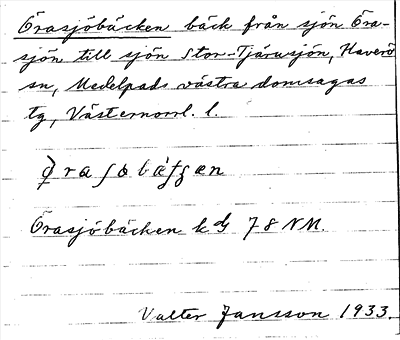 Örasjöbäcken bäck från sjön Öra-
sjön till sjön Stor-Tjärusjön, Haverö
sn, Medelpads västra domsagas
tg, Västernorrl. l.
Örasjöbäcken k dg 78 NM.
Valter Jansson 1933.